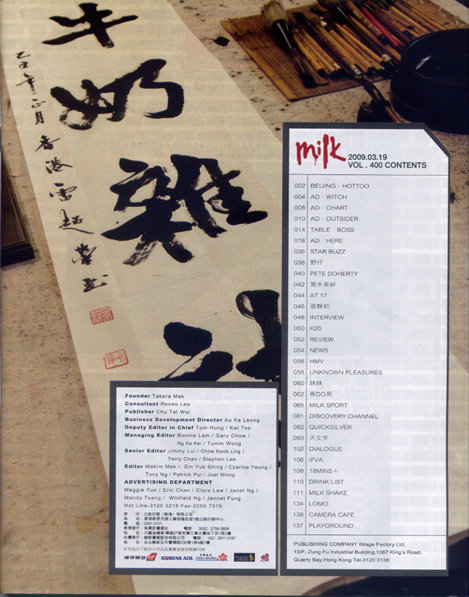 牛奶雜
己丑年正月香港雷超榮書
milk
2009.03.19
VOL . 400 CONTENTS
002 BEIJING : HOTTOO
004 AD : WITCH
008 AD : CHART
010 AD : OUTSIDER
014 TABLE : BOSS
018 AD : HERE
036 STAR BUZZ
038 野仔
040 PETE DOHERTY
042 黑木美紗
044 AT 17
046 張靜初
048 INTERVIEW
050 K20
052 REVIEW
054 NEWS
056 HMV
058 UNKNOWN PLEASURES
060 妹妹
062 喪DD男
065 MILK SPORT
081 DISCOVERY CHANNEL
082 QUICKSILVER
093 天文年
102 DIALOGUE
106 IFVA
108 18MINS+
110 DRINK LIST
111 MILK SHAKE
134 LOMO
136 CAMERA CAFE
137 PLAYGROUND
PUBLISHING COMPANY IMage Factory Ltd.
13/F, Zung Fu Industrial Building,1067 King's Road,
Quarry Bay,Hong Kong Tel-3120 3138
Founder Takara Mak
Consultant Renee Lee
Publisher Chu Tat Wai
Business Development Director Au Ka Leong
Deputy Editor in Chief Tom Hung / Kel Tse
Managing Editor Bonnie Lam / Gary Chow /
Ng Ka Kei / Tomm Wong
Senior Editor Jimmy Lui / Chow Kwok Ling /
Terry Chan / Stephen Lee
Editor Makim Mak / Sin Yuk Shing / Czarina Yeung /
Tony Ng / Patrick Pui / Joel Wong
ADVERTISING DEPARTMENT
Maggie Yun / Eric Chan / Clara Law / Janet Ng /
Mandy Tsang / Winfield Ng / Jannet Fung
Hot Line-3120 3218 Fax-2250 7315
KOREAN AIR